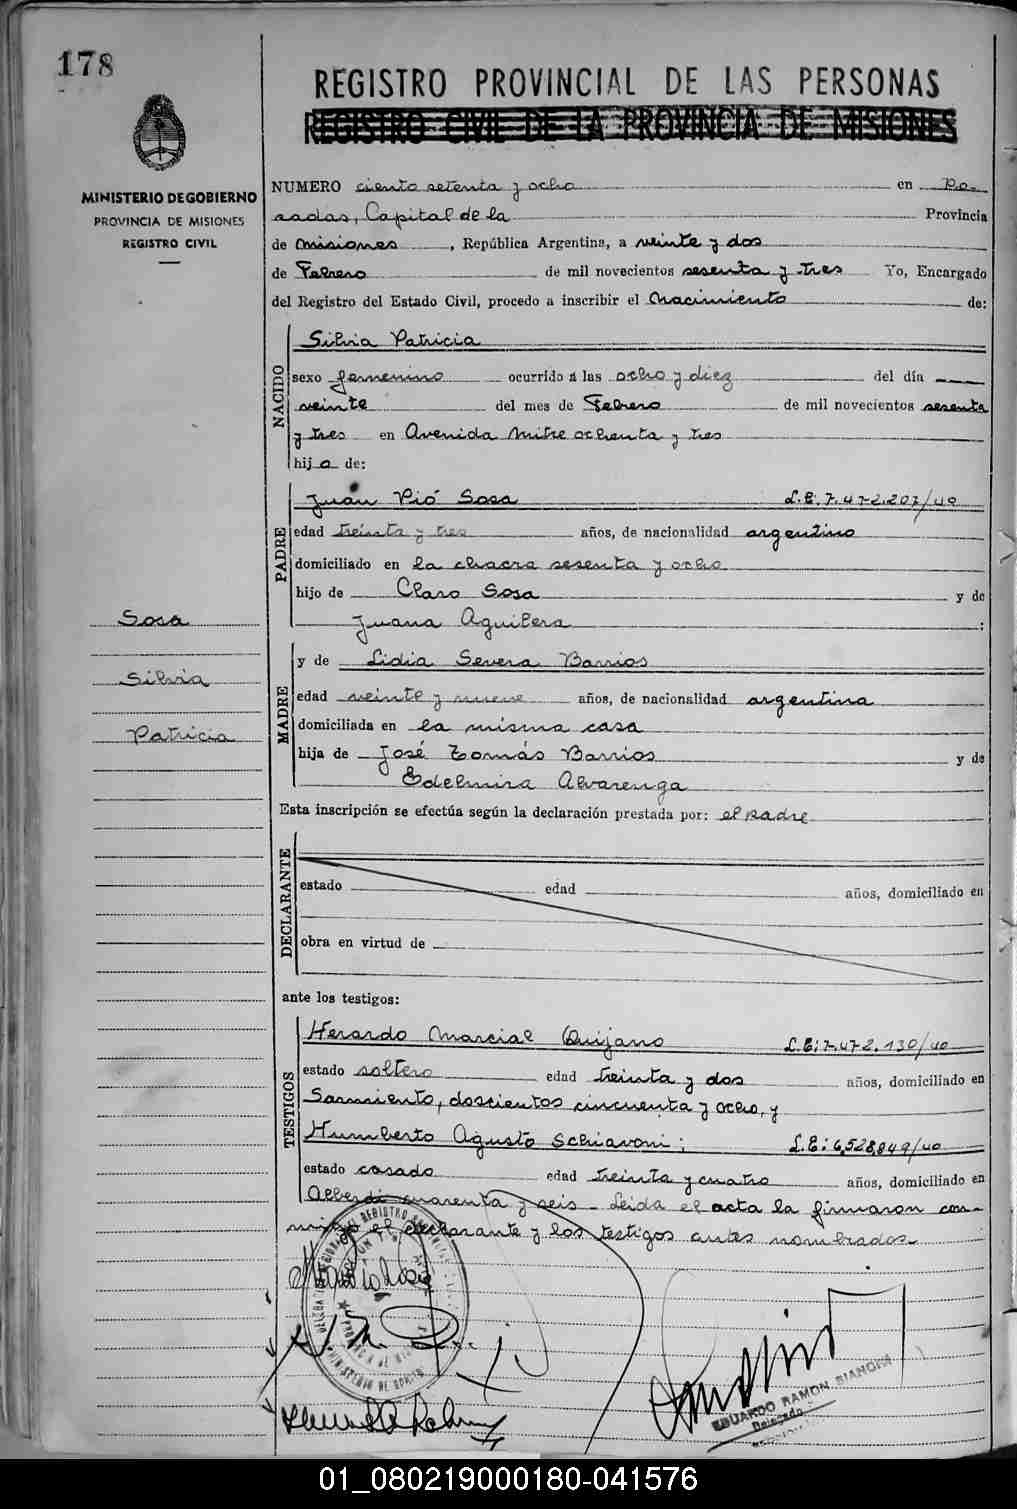 178
REGISTRO PROVINCIAL DE LAS PERSONAS
REGISTRO CIVIL DE LA PROVINCIA DE MISIONES
MINISTERIO DE GOBIERNO
PROVINCIA DE MISIONES
REGISTRO CIVIL
NUMERO ciento setenta y ocho en Po-
sadas, Capital de la Provincia
de Misiones, República Argentina, a veinte y dos
de Febrero de mil novecientos sesenta y tres Yo, Encargado
del Registro del Estado Civil, procedo a inscribir el Nacimiento de:
NACIDO
Silvia Patricia
sexo femenino ocurrido á las ocho y diez del día
veinte del mes de Febrero de mil novecientos sesenta
y tres en Avenida Mitre ochenta y tres
hija de:
PADRE
Juan Pió Sosa L.E.7.472.207/40
edad treinta y tres años, de nacionalidad argentino
domiciliado en la chacra sesenta y ocho
hijo de Claro Sosa y de
Juana Aguilera :
Sosa
Silvia
Patricia
MADRE
y de Lidia Severa Barrios
edad veinte y nueve años, de nacionalidad argentina
domiciliada en la misma casa
hija de José Tomás Barrios y de
Edelmira Alvarenga
Esta inscripción se efectúa según la declaración prestada por: el padre
DECLARANTE
estado edad años, domiciliado en
obra en virtud de
ante los testigos:
TESTIGOS
Herardo Marcial Quijano L.E:7.472.130/40
estado soltero edad treinta y dos años, domiciliado en
Sarmiento, doscientos cincuenta y ocho, y
Humberto Agusto Schiavoni; L.E:6,528,849/40
estado casado edad treinta y cuatro años, domiciliado en
Alberdi cuarenta y seis - Leida el acta la firmaron con-
migo el declarante y los testigos antes nombrados
EDUARDO RAMON BIANCHI
Delegado
01_080219000180-041576